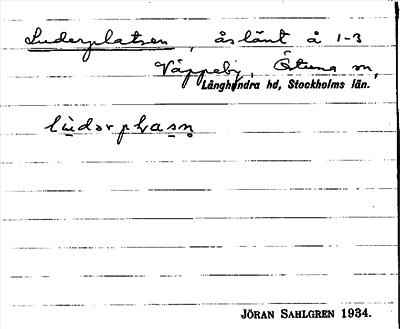 Luderplatsen, åslänt å 1-3
Väppeby, Östuna sn,
Långhundra hd, Stockholms län.
lùdərplasn̥
JÖRAN SAHLGREN 1934.